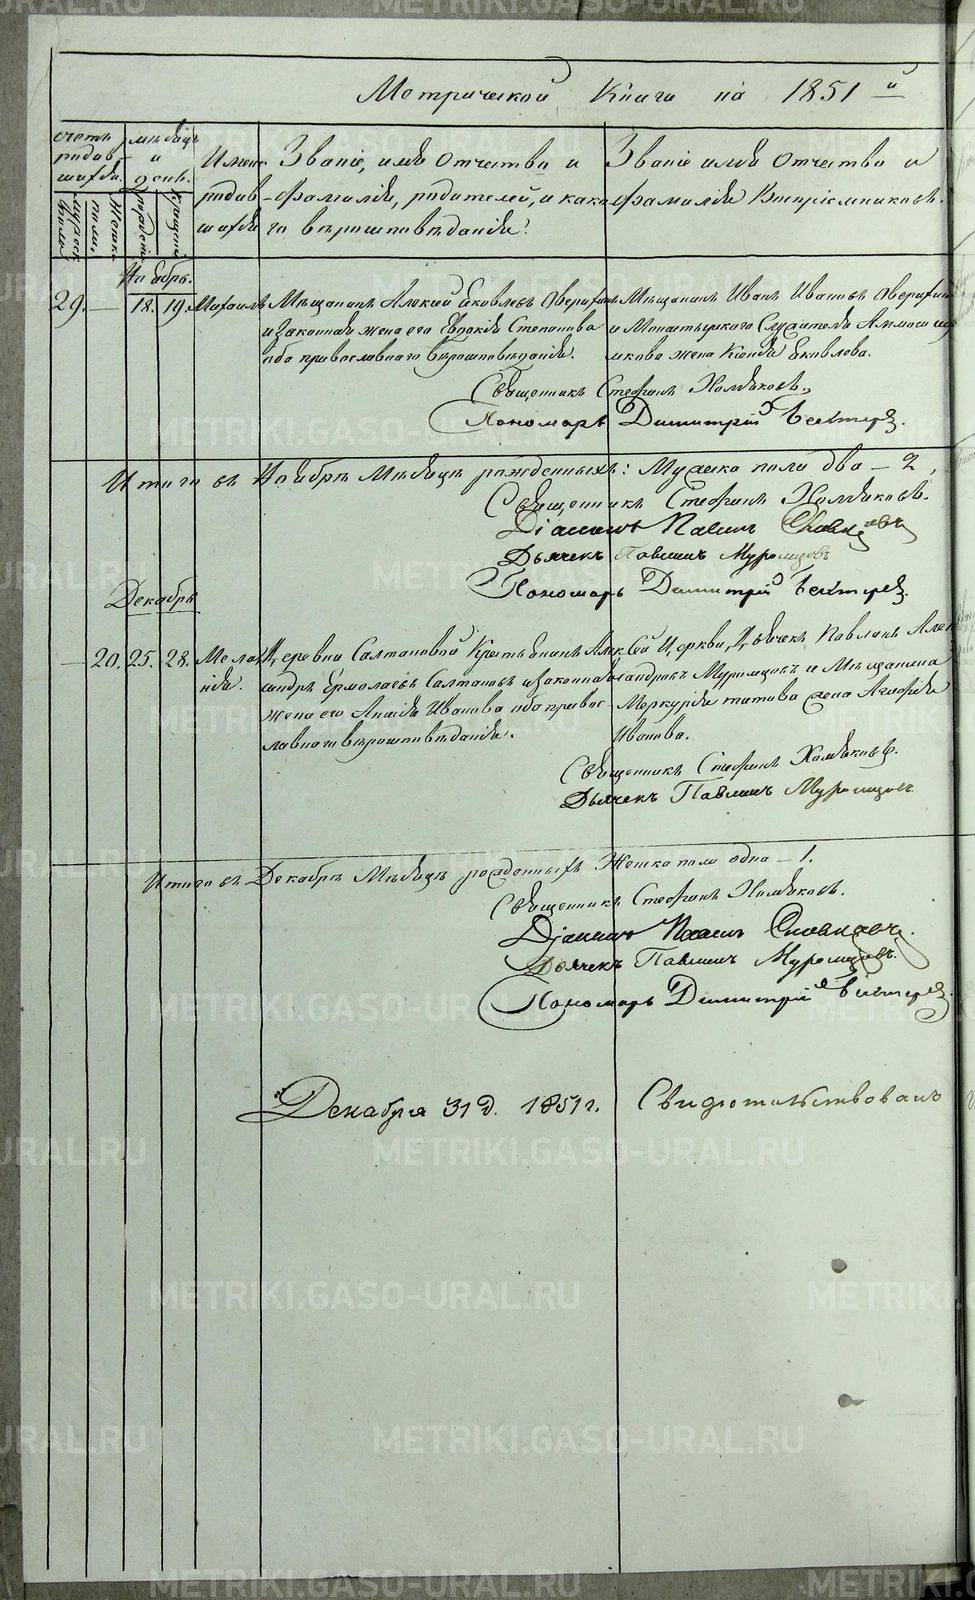 METRIKI.GASO-URAL.RU
Метрической Книги на 1851й
Счетъ родившихся.
мѣсяцъ и день.
Имена родившихся
Званіе, имя отчество и фамилія, родителей, и какого вѣроисповѣданія.
Званіе имя отчество и фамилія Воспріемниковъ.
мужеска пола
Женска
рожденія
крещенія
Ноябрь.
29. — 18. 19. Михаилъ
Мѣщанинъ Яковлевъ
и законная жена его Евдокія Степанова
оба православнаго вѣроисповѣданія.
Мѣщанинъ Иванъ Ивановъ
и
жена Ксенія Яковлева.
Священникъ Стефанъ Хомяковъ.
Пономарь Димитрій
Итого въ Ноябрѣ Мѣсяцѣ рожденныхъ: Мужеска пола два — 2,
Священникъ Стефанъ Хомяковъ.
Діаконъ
Дьячекъ Павлинъ Муромцовъ
Пономарь Димитрій
Декабрь
— 20. 25. 28. Меланія.
Деревни Салтановой Крестьянинъ Александръ Ермолаевъ Салтановъ и законная
жена его Ивановна оба православнаго вѣроисповѣданія.
Сей Церкви, Дьячекъ Павлинъ Александровъ Муромцовъ и Мѣщанина
Меркурія Титова жена Агафія
Иванова.
Священникъ Стефанъ Хомяковъ.
Дьячекъ Павлинъ Муромцовъ
Итого въ Декабрѣ Мѣсяцѣ рожденныхъ Женска пола одна — 1.
Священникъ Стефанъ Хомяковъ.
Діаконъ
Дьячекъ Павлинъ Муромцовъ.
Пономарь Димитрій
Декабря 31 д. 1851 г. Свидѣтельствовалъ